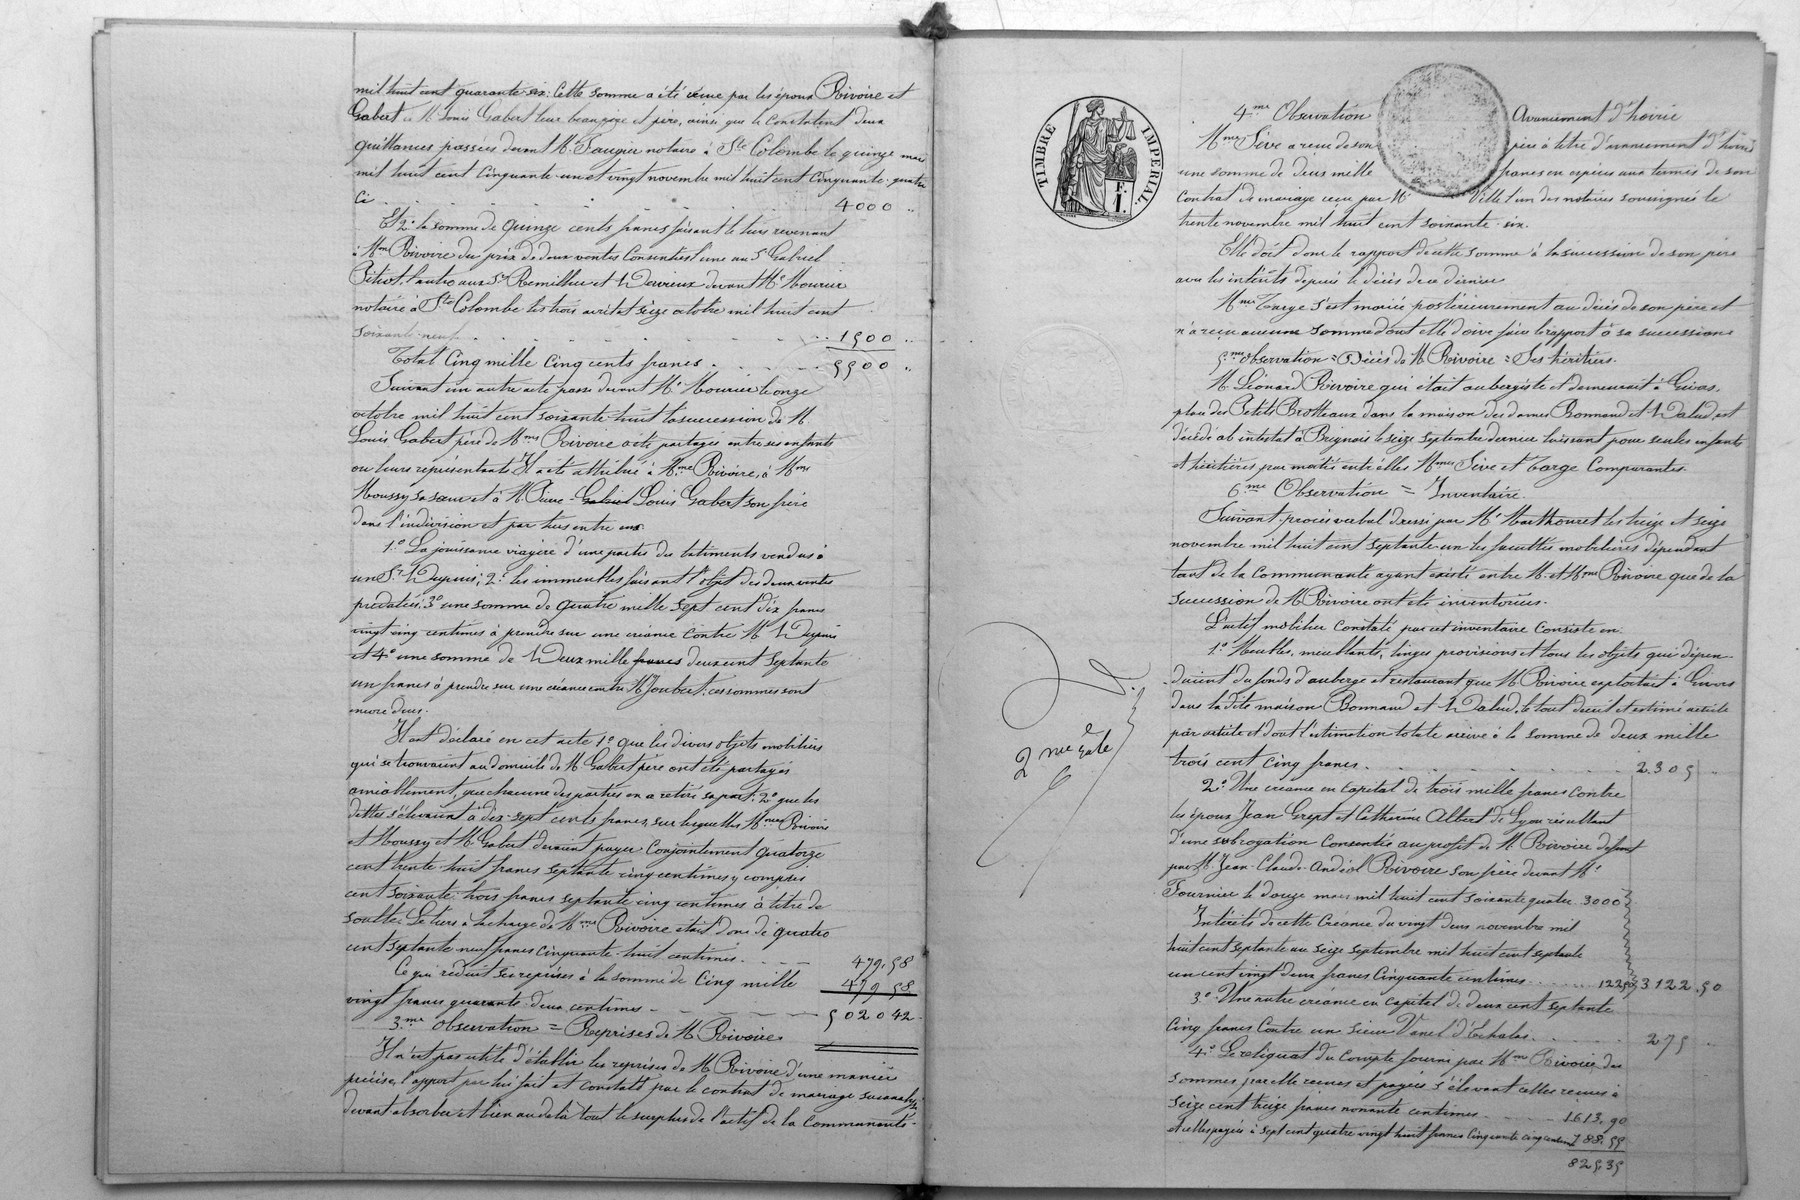 mil huit cent quarante-six; cette somme a été reçue par les époux Rivoire et
Gabert de M. Louis Gabert leur beau père et père, ainsi que le constatent deux
quittances passées devant Me Faugier notaire à Ste Colombe le quinze mars
mil huit cent cinquante-un et vingt novembre mil huit cent cinquante-quatre
Ci . . . . . 4000 "
Et 2º la somme de quinze cents francs faisant le tiers revenant
à Mme Rivoire du prix de deux ventes consenties l'une au Sr Gabriel
Pitiot, l'autre aux Srs Remillier et Dervieux devant Me Mourier
notaire à Ste Colombe les trois avril et seize octobre mil huit cent
soixante-neuf . . . . 1500 "
Total Cinq mille cinq cents francs . . . 5500 "
Suivant un autre acte passé devant Me Mourier le onze
octobre mil huit cent soixante-huit la succession de M.
Louis Gabert père de Mme Rivoire a été partagée entre ses enfants
ou leurs représentants. Il a été attribué à Mme Rivoire, à Mme
Moussy sa sœur et à M. Pierre-Gabriel Louis Gabert son frère
dans l'indivision et par tiers entre eux
1.º La jouissance viagère d'une partie des batiments vendus à
un Sr Dupuis; 2.º les immeubles faisant l'objet des deux ventes
predatées; 3º une somme de quatre mille sept cent dix francs
vingt-cinq centimes à prendre sur une créance contre M. Dupuis
et 4º une somme de Deux mille francs deux cent septante
un francs à prendre sur une créance contre M. Joubert; ces sommes sont
encore dues.
Il est déclaré en cet acte 1º que les divers objets mobiliers
qui se trouvaient au domicile de M. Gabert père ont été partagés
amiablement, que chacune des parties en a retiré sa part; 2º que les
dettes s'élevaient à dix-sept cents francs, sur lesquelles Mmes Rivoire
et Moussy et M. Gabert devaient payer conjointement quatorze
cent trente-huit francs septante cinq centimes y compris
cent soixante-trois francs septante cinq centimes à titre de
soulte. Le tiers à la charge de Mme Rivoire était donc de quatre
cent septante neuf francs cinquante-huit centimes . . . 479,58
479 58
Ce qui réduit ses reprises à la somme de Cinq mille
vingt francs quarante-deux centimes . . . 5020 42
3.me Observation = Reprises de M. Rivoire.
Il n'est pas utile d'établir les reprises de M. Rivoire d'une manière
précise, l'apport par lui fait et constaté par le contrat de mariage susanalysé
devant absorber et bien au delà tout le surplus de l'actif de la Communauté.
TIMBRE IMPERIAL.
1 F.
2me rôle
4.me Observation Avancement d'hoirie
Mme Sève a reçu de son père à titre d'avancement d'hoirie
une somme de deux mille francs en espèces aux termes de son
contrat de mariage reçu par Me Ville l'un des notaires soussignés le
trente novembre mil huit cent soixante-six.
Elle doit donc le rapport de cette somme à la succession de son père
avec les intérêts depuis le décès de ce dernier
Mme Targe s'est mariée postérieurement au décès de son père et
n'a reçu aucune somme dont elle doive faire le rapport à sa succession
5.me Observation = Décès de M. Rivoire = Ses héritiers.
M. Léonard Rivoire qui était aubergiste et demeurait à Givors,
place des Petits Brotteaux dans la maison des dames Bonnand et Dalud, est
décédé ab intestat à Brignais le seize septembre dernier laissant pour seules enfants
et héritières par moitié entr'elles Mmes Sève et Targe Comparantes.
6.me Observation = Inventaire.
Suivant procès verbal dressé par Me Marthouret les treize et seize
novembre mil huit cent septante-un les facultés mobilières dépendant
tant de la Communauté ayant existé entre M. et Mme Rivoire que de la
succession de M. Rivoire ont été inventoriées.
L'actif mobilier constaté par cet inventaire consiste en
1.º Meubles, meublants, linges provisions et tous les objets qui dépen-
daient du fonds d'auberge et restaurant que M. Rivoire exploitait à Givors
dans la dite maison Bonnand et Dalud, le tout décrit et estimé article
par article et dont l'estimation totale arrive à la somme de deux mille
trois cent cinq francs . . . 2.305
2.º Une créance en capital de trois mille francs contre
les époux Jean Grept et Catherine Albert de Lyon résultant
d'une subrogation consentie au profit de M. Rivoire defunt
par M. Jean-Claude-Andéol Rivoire son frère devant Me
Fournier le douze mars mil huit cent soixante quatre. 3000
Intérêts de cette créance du vingt deux novembre mil
huit cent septante au seize septembre mil huit cent septante
un cent vingt deux francs Cinquante centimes . . . 122,50 3122,50
3.º Une autre créance en capital de deux cent septante
cinq francs contre un sieur Vanel d'Echalas . . . 275
4.º Le reliquat du compte fourni par Mme Rivoire des
sommes par elle reçues et payées s'élevant celles reçues à
seize cent treize francs nonante centimes . . . 1613,90
et celles payées à sept cent quatre vingt huit francs cinquante cinq centimes 788,55
825,35